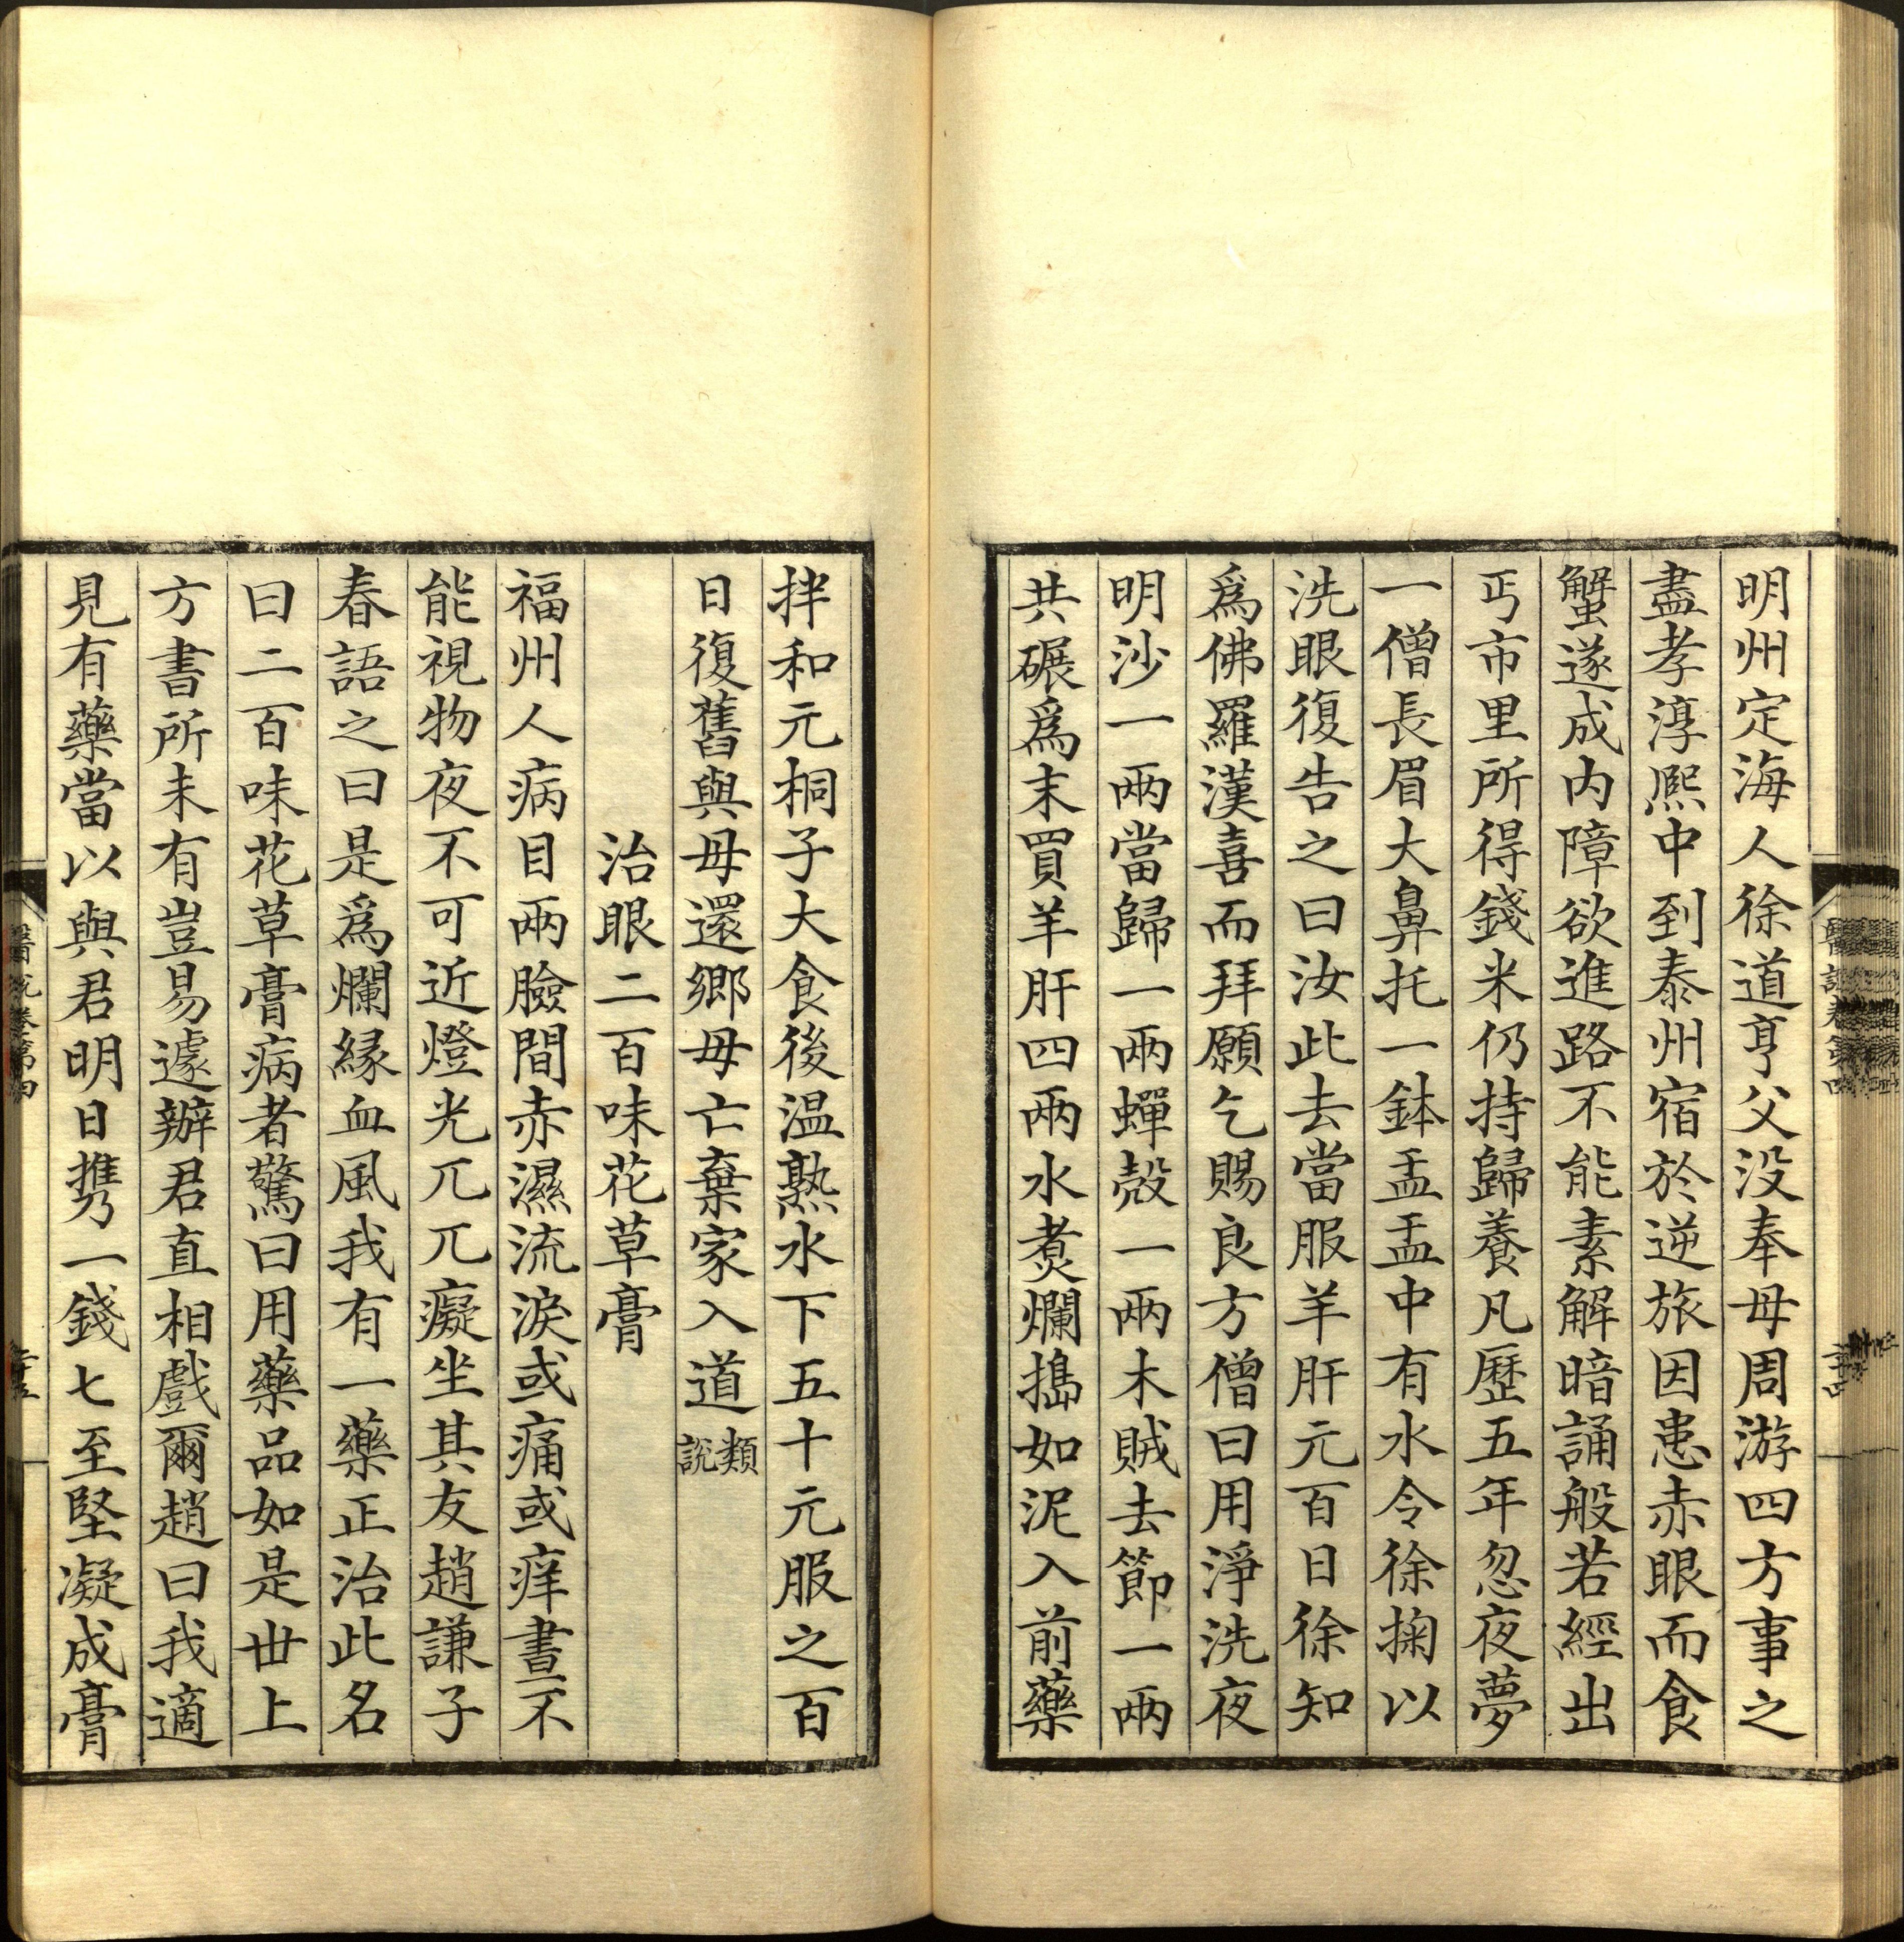 明州定海人徐道亨父没奉母周游四方事之
盡孝淳熈中到泰州宿於逆旅因患赤眼而食
蟹遂成内障欲進路不能素解暗誦般若經出
丐市里所得錢米仍持歸養凡歷五年忽夜夢
一僧長眉大鼻托一鉢盂盂中有水令徐掬以
洗眼復告之曰汝此去當服羊肝元百日徐知
爲佛羅漢喜而拜願乞賜良方僧曰用淨洗夜
明沙一兩當歸一兩蟬殼一兩木賊去節一兩
共碾爲末買羊肝四兩水煑爛搗如泥入前藥
拌和元桐子大食後温熟水下五十元服之百
日復舊與母還鄉母亡棄家入道類說
治眼二百味花草膏
福州人病目兩臉間赤濕流淚或痛或痒晝不
能視物夜不可近燈光兀兀癡坐其友趙謙子
春語之曰是爲爛緣血風我有一藥正治此名
曰二百味花草膏病者驚曰用藥品如是丗上
方書所未有豈易遽辦君直相戲爾趙曰我適
見有藥當以與君明日携一錢匕至堅凝成膏
醫說卷第四
二十五